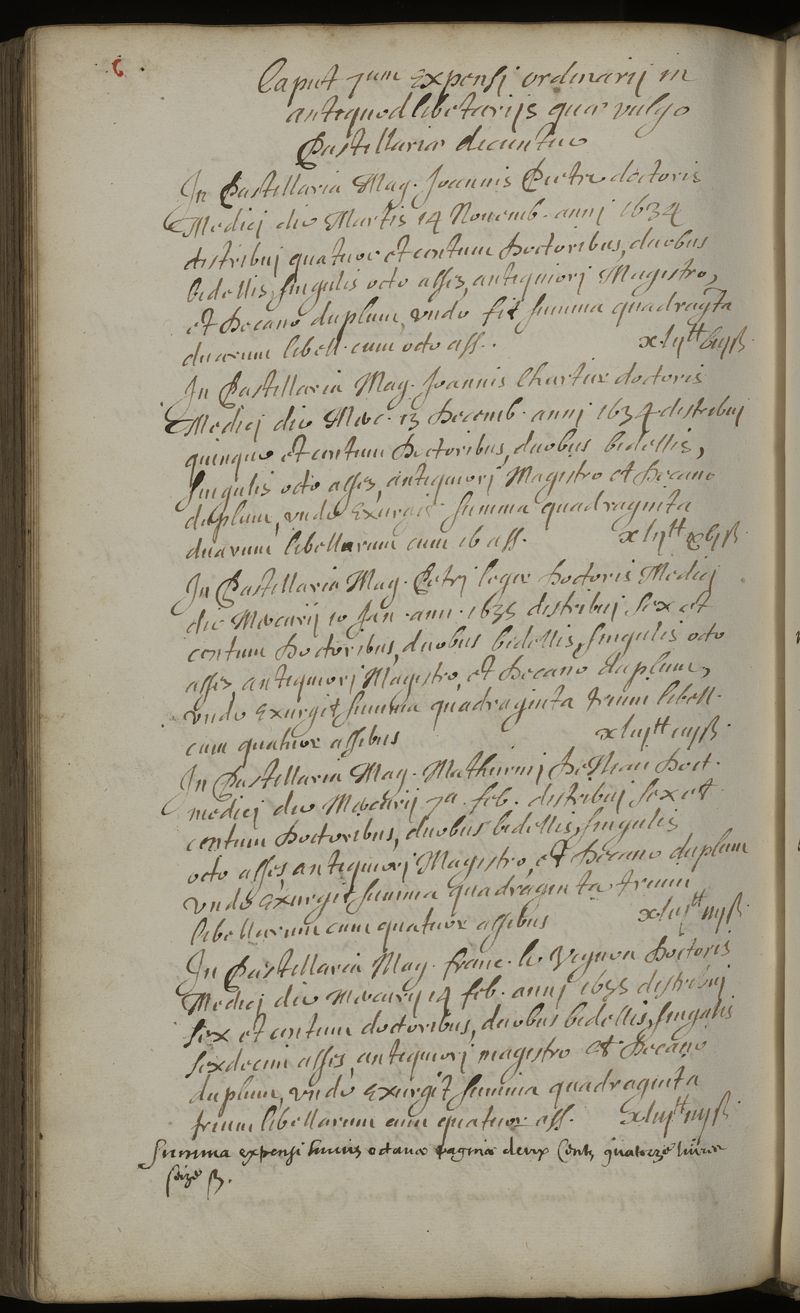 6
Caput 7um Expensj ordinarij in
antequodlibetarijs quae vulgo
Pastillariae dicuntur
In Pastillaria Mag. Joannis Pietre doctoris
Medicj die Martis 14 Nouemb. annj 1634
distribuj quatuor et centum Doctoribus, duobus
bidellis, singulis octo asses, antiquiorj Magistro,
et Decano duplum, unde fit summa quadragta
duarum libell. cum octo ass. xlijtt viijß.
In Pastillaria Mag. Joannis Chartier doctoris
Medicj die Merc. 13 Decemb. annj 1634 distribuj
quinque et centum Doctoribus, duobus bidellis,
singulis octo asses, antiquiorj Magistro et Decano
duplum, unde exurgit summa quadraginta
duarum libellarum cum 16 ass. xlijtt xvjß.
In Pastillaria Mag. Petrj legier Doctoris Medicj
die Mercurij 10 Jan. ann. 1635 distribuj sex et
centum Doctoribus, duobus bidellis, singulis octo
asses, antiquiorj Magistro, et Decano duplum,
unde exurgit summa quadraginta trium libell.
cum quatuor assibus xliijtt iiijß.
In Pastillaria Mag. Mathurinj Doct.
medicj die Mercurij 7a feb. distribuj sex et
centum Doctoribus, duobus bidellis, singulis
octo asses antiquiorj Magistro, et Decano duplum
unde exurgit summa quadraginta trium
libellarum cum quatuor assibus xliijtt iiijß.
In Pastillaria Mag. franc. le Vignon Doctoris
Medicj die Mercurij 14 feb. annj 1635 distribuj
sex et centum doctoribus, duobus bidellis, singulis
sexdecim asses, antiquiorj magistro et Decano
duplum, unde exurgit summa quadraginta
trium libellarum cum quatuor ass. xliijtt iiijß.
Summa expensi huius octauae paginae deux Cents quatorze liures
seize ß.